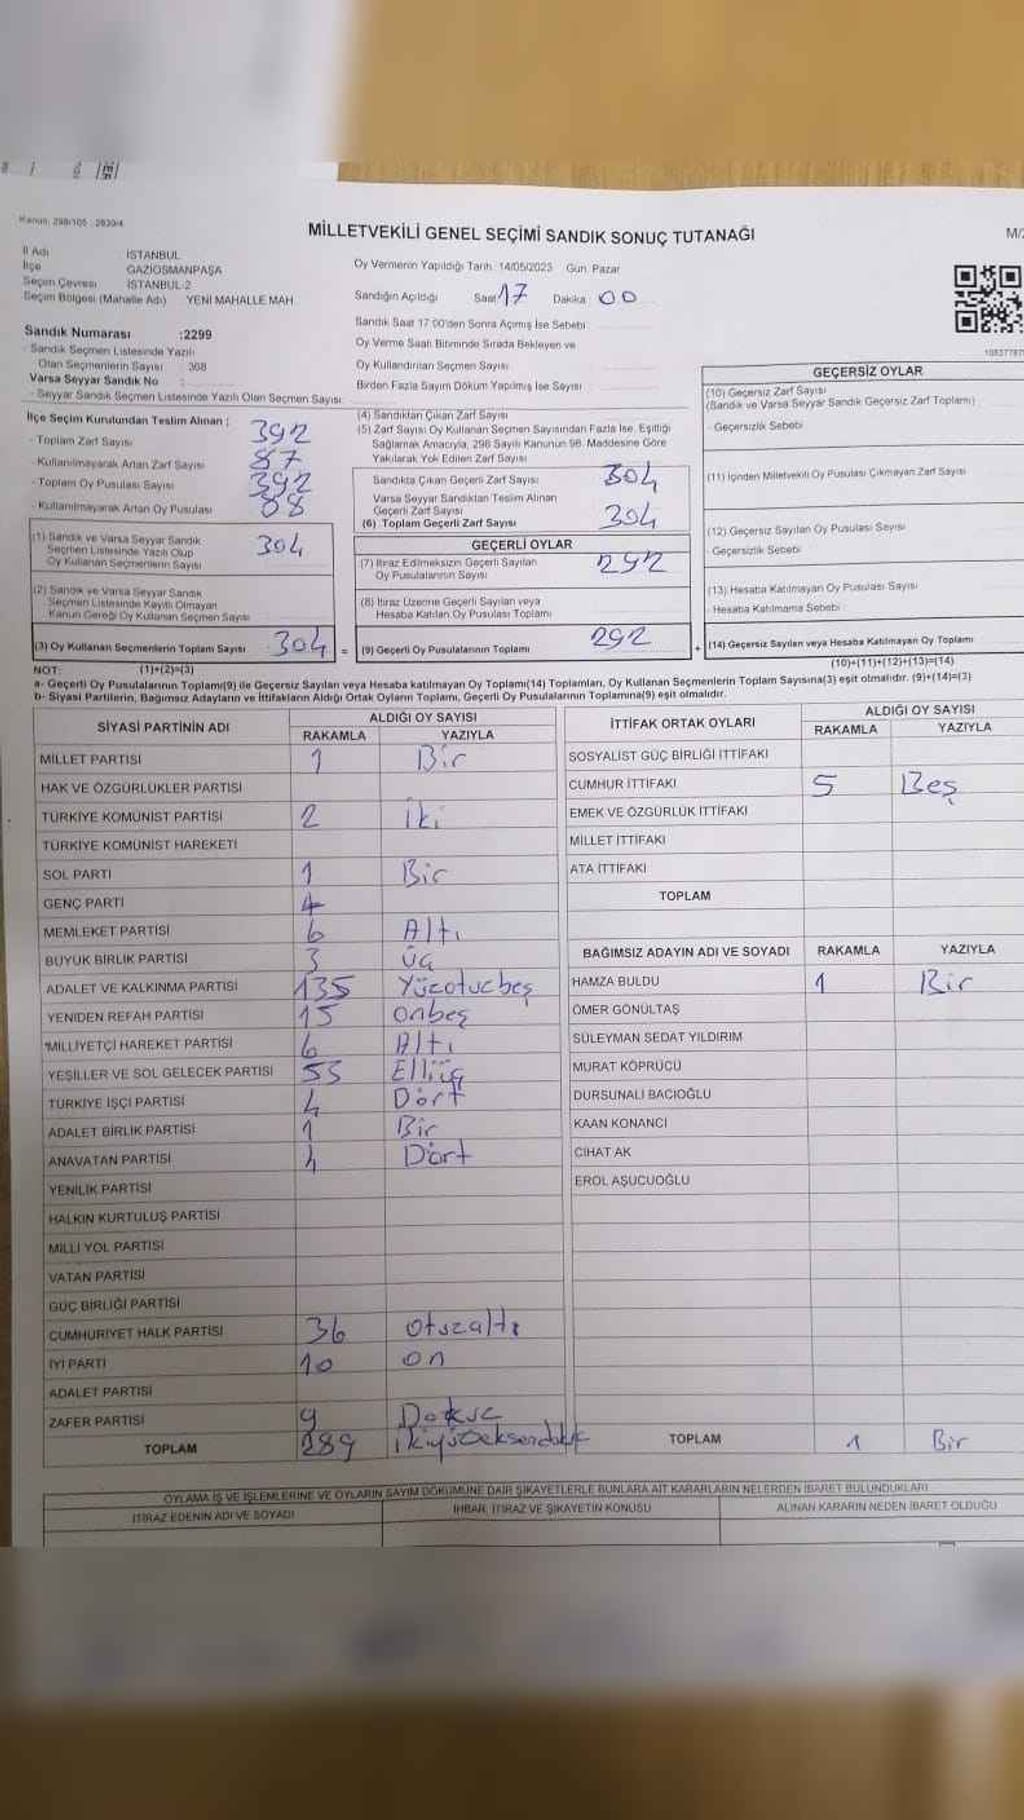 Kanun: 298/105 - 2839/4
MİLLETVEKİLİ GENEL SEÇİMİ SANDIK SONUÇ TUTANAĞI
İl Adı İSTANBUL
İlçe GAZİOSMANPAŞA
Seçim Çevresi İSTANBUL-2
Seçim Bölgesi (Mahalle Adı) YENİ MAHALLE MAH.
Sandık Numarası :2299
- Sandık Seçmen Listesinde Yazılı
Olan Seçmenlerin Sayısı 308
Varsa Seyyar Sandık No :
- Seyyar Sandık Seçmen Listesinde Yazılı Olan Seçmen Sayısı:
Oy Vermenin Yapıldığı Tarih: 14/05/2023 Gün: Pazar
Sandığın Açıldığı Saat 17 Dakika 00
Sandık Saat 17:00'den Sonra Açılmış İse Sebebi
Oy Verme Saati Bitiminde Sırada Bekleyen ve
Oy Kullandırılan Seçmen Sayısı
Birden Fazla Sayım Döküm Yapılmış İse Sayısı
İlçe Seçim Kurulundan Teslim Alınan :
- Toplam Zarf Sayısı 392
- Kullanılmayarak Artan Zarf Sayısı 87
- Toplam Oy Pusulası Sayısı 392
- Kullanılmayarak Artan Oy Pusulası 88
(1) Sandık ve Varsa Seyyar Sandık
Seçmen Listesinde Yazılı Olup
Oy Kullanan Seçmenlerin Sayısı 304
(2) Sandık ve Varsa Seyyar Sandık
Seçmen Listesinde Kayıtlı Olmayan
Kanun Gereği Oy Kullanan Seçmen Sayısı
(3) Oy Kullanan Seçmenlerin Toplam Sayısı 304 =
(4) Sandıktan Çıkan Zarf Sayısı
(5) Zarf Sayısı Oy Kullanan Seçmen Sayısından Fazla İse, Eşitliği
Sağlamak Amacıyla, 298 Sayılı Kanunun 98. Maddesine Göre
Yakılarak Yok Edilen Zarf Sayısı
Sandıkta Çıkan Geçerli Zarf Sayısı 304
Varsa Seyyar Sandıktan Teslim Alınan
Geçerli Zarf Sayısı
(6) Toplam Geçerli Zarf Sayısı 304
GEÇERLİ OYLAR
(7) İtiraz Edilmeksizin Geçerli Sayılan
Oy Pusulalarının Sayısı 292
(8) İtiraz Üzerine Geçerli Sayılan veya
Hesaba Katılan Oy Pusulası Toplamı
(9) Geçerli Oy Pusulalarının Toplamı 292 +
GEÇERSİZ OYLAR
(10) Geçersiz Zarf Sayısı
(Sandık ve Varsa Seyyar Sandık Geçersiz Zarf Toplamı)
- Geçersizlik Sebebi
(11) İçinden Milletvekili Oy Pusulası Çıkmayan Zarf Sayısı
(12) Geçersiz Sayılan Oy Pusulası Sayısı
- Geçersizlik Sebebi
(13) Hesaba Katılmayan Oy Pusulası Sayısı
- Hesaba Katılmama Sebebi
(14) Geçersiz Sayılan veya Hesaba Katılmayan Oy Toplamı
NOT: (1)+(2)=(3) (10)+(11)+(12)+(13)=(14)
a- Geçerli Oy Pusulalarının Toplamı(9) ile Geçersiz Sayılan veya Hesaba katılmayan Oy Toplamı(14) Toplamları, Oy Kullanan Seçmenlerin Toplam Sayısına(3) eşit olmalıdır. (9)+(14)=(3)
b- Siyasi Partilerin, Bağımsız Adayların ve İttifakların Aldığı Ortak Oyların Toplamı, Geçerli Oy Pusulalarının Toplamına(9) eşit olmalıdır.
SİYASİ PARTİNİN ADI ALDIĞI OY SAYISI
RAKAMLA YAZIYLA
MİLLET PARTİSİ 1 Bir
HAK VE ÖZGÜRLÜKLER PARTİSİ
TÜRKİYE KOMÜNİST PARTİSİ 2 İki
TÜRKİYE KOMÜNİST HAREKETİ
SOL PARTİ 1 Bir
GENÇ PARTİ
MEMLEKET PARTİSİ 6 Altı
BÜYÜK BİRLİK PARTİSİ 3 üç
ADALET VE KALKINMA PARTİSİ 135 Yüzotuzbeş
YENİDEN REFAH PARTİSİ 15 onbeş
MİLLİYETÇİ HAREKET PARTİSİ 6 Altı
YEŞİLLER VE SOL GELECEK PARTİSİ
TÜRKİYE İŞÇİ PARTİSİ 4 Dört
ADALET BİRLİK PARTİSİ 1 Bir
ANAVATAN PARTİSİ 4 Dört
YENİLİK PARTİSİ
HALKIN KURTULUŞ PARTİSİ
MİLLİ YOL PARTİSİ
VATAN PARTİSİ
GÜÇ BİRLİĞİ PARTİSİ
CUMHURİYET HALK PARTİSİ 36 otuzaltı
İYİ PARTİ 10 on
ADALET PARTİSİ
ZAFER PARTİSİ 9 Dokuz
TOPLAM 289
İTTİFAK ORTAK OYLARI ALDIĞI OY SAYISI
RAKAMLA YAZIYLA
SOSYALİST GÜÇ BİRLİĞİ İTTİFAKI
CUMHUR İTTİFAKI 5 Beş
EMEK VE ÖZGÜRLÜK İTTİFAKI
MİLLET İTTİFAKI
ATA İTTİFAKI
TOPLAM
BAĞIMSIZ ADAYIN ADI VE SOYADI RAKAMLA YAZIYLA
HAMZA BULDU 1 Bir
ÖMER GÖNÜLTAŞ
SÜLEYMAN SEDAT YILDIRIM
MURAT KÖPRÜCÜ
DURSUNALİ BACIOĞLU
KAAN KONANCI
CİHAT AK
EROL AŞUCUOĞLU
TOPLAM 1 Bir
OYLAMA İŞ VE İŞLEMLERİNE VE OYLARIN SAYIM DÖKÜMÜNE DAİR ŞİKAYETLERLE BUNLARA AİT KARARLARIN NELERDEN İBARET BULUNDUKLARI
İTİRAZ EDENİN ADI VE SOYADI İHBAR, İTİRAZ VE ŞİKAYETİN KONUSU ALINAN KARARIN NEDEN İBARET OLDUĞU